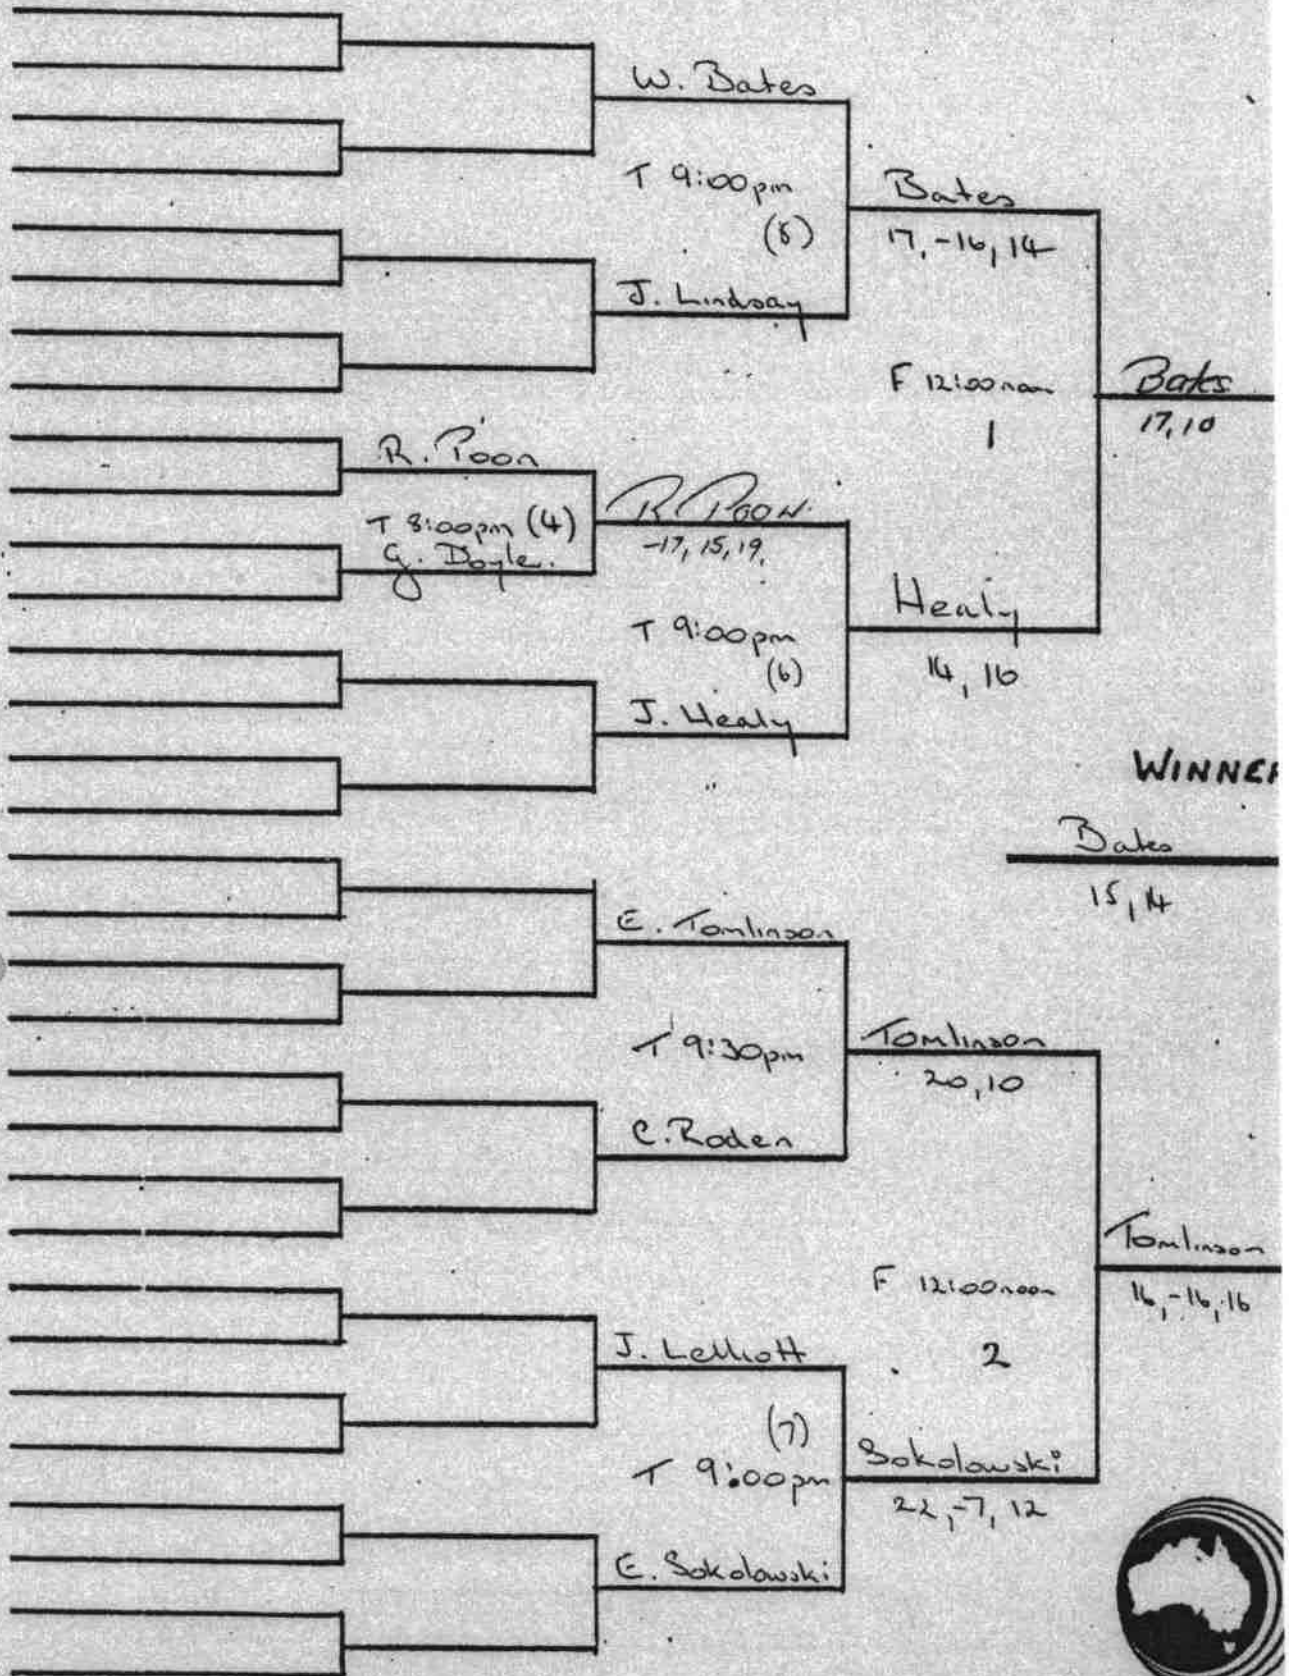 W. Bates
T 9:00pm
(8)
J. Lindsay
Bates
17, -16, 14
F 12:00 noon
1
Bates
17, 10
R. Poon
T 8:00pm (4)
G. Doyle.
R POON.
-17, 15, 19.
T 9:00pm
(6)
J. Healy
Healy
14, 16
WINNER
Bates
15, 14
E. Tomlinson
T 9:30pm
C. Roden
Tomlinson
20, 10
F 12:00 noon
2
Tomlinson
16, -16, 16
J. Lelliott
(7)
T 9:00pm
E. Sokolowski
Sokolowski
22, -7, 12